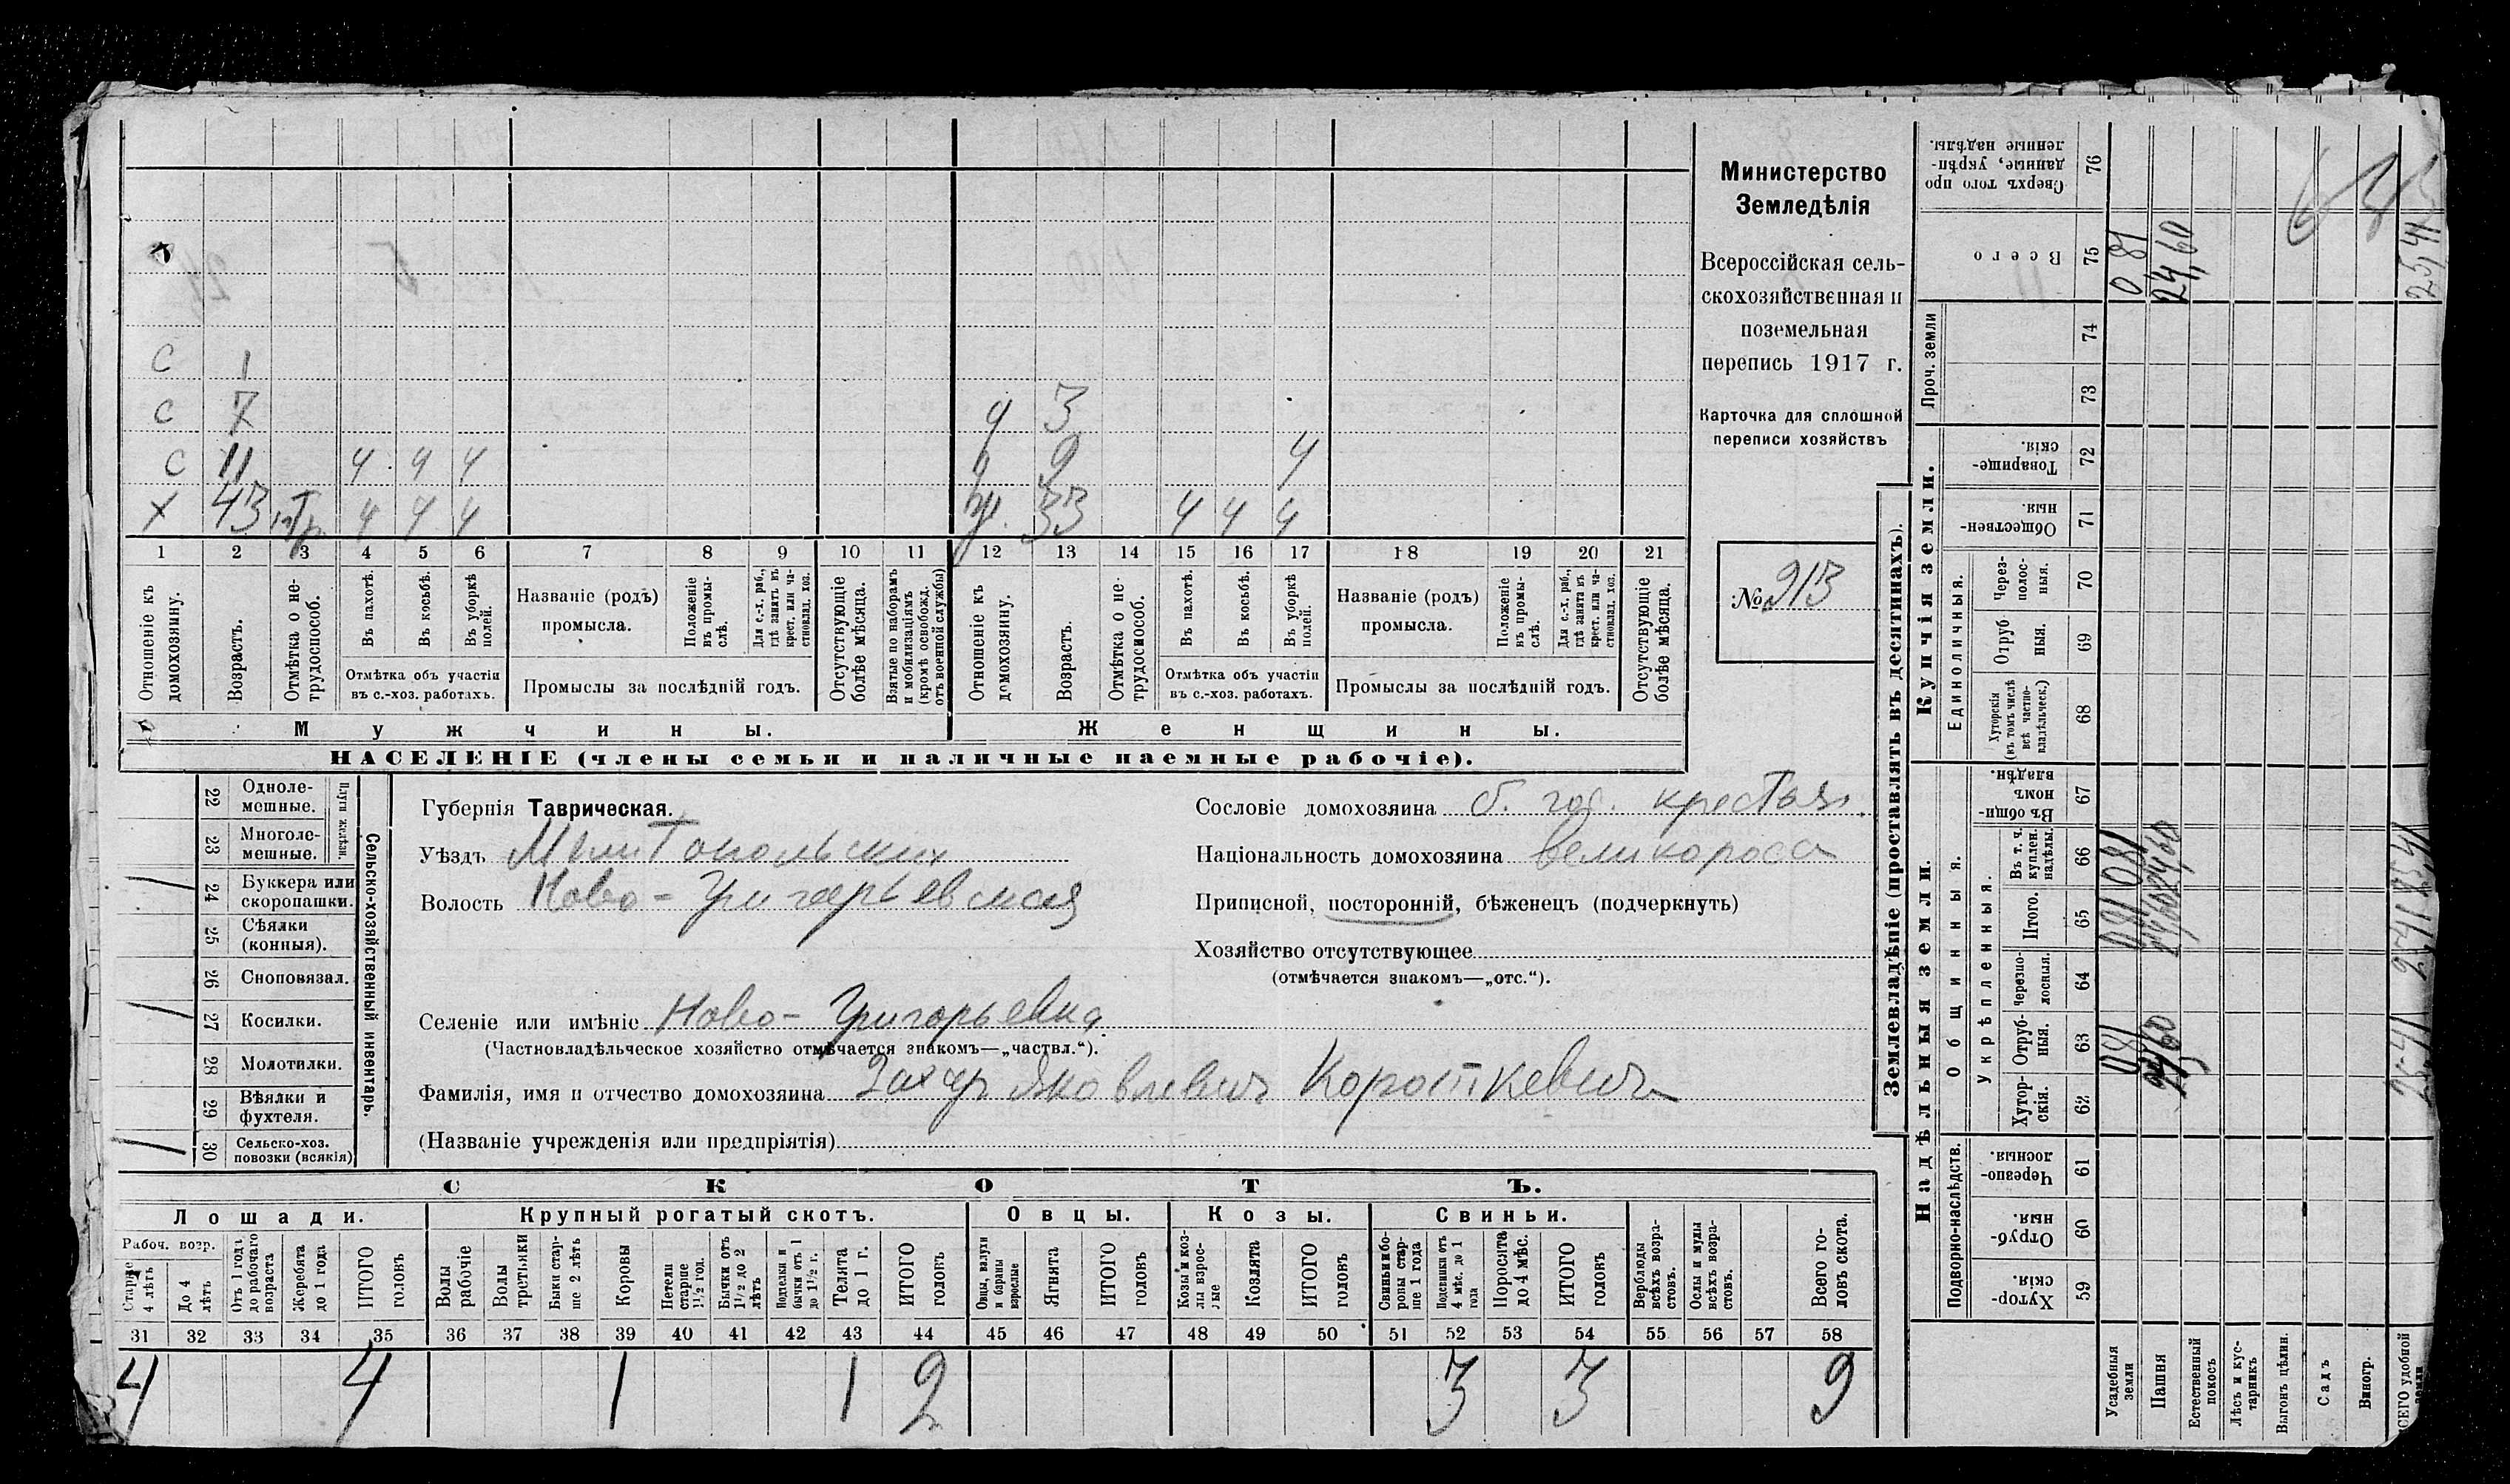 С 1
С 7 д 3
С 11 ч ч ч д 9 ч
Х 43 ч ч ч ж. 33 ч ч ч
1 2 3 4 5 6 7 8 9 10 11 12 13 14 15 16 17 18 19 20 21
Отношеніе къ домохозяину.
Возрастъ.
Отмѣтка о нетрудоспособ.
Въ пахотѣ.
Въ косьбѣ.
Въ уборкѣ полей.
Отмѣтка объ участіи въ с.-хоз. работахъ.
Названіе (родъ) промысла.
Положеніе въ промыслѣ.
Для с.-х. раб., гдѣ занятъ въ крест. или частновлад. хоз.
Промыслы за послѣдній годъ.
Отсутствующіе болѣе мѣсяца.
Взятые по наборамъ и мобилизаціямъ (кромѣ освобожд. отъ военной службы)
Отношеніе къ домохозяину.
Возрастъ.
Отмѣтка о нетрудоспособ.
Въ пахотѣ.
Въ косьбѣ.
Въ уборкѣ полей.
Отмѣтка объ участіи въ с.-хоз. работахъ.
Названіе (родъ) промысла.
Положеніе въ промыслѣ.
Для с.-х. раб., гдѣ занята въ крест. или частновлад. хоз.
Промыслы за послѣдній годъ.
Отсутствующіе болѣе мѣсяца.
Мужчины. Женщины.
НАСЕЛЕНІЕ (члены семьи и наличные наемные рабочіе).
Министерство
Земледѣлія
Всероссійская сель-
скохозяйственная и
поземельная
перепись 1917 г.
Карточка для сплошной
переписи хозяйствъ
№ 913
22 Однолемешные.
23 Многолемешные.
Плуги желѣзн.
24 Буккера или скоропашки.
25 Сѣялки (конныя).
26 Сноповязал.
27 Косилки.
28 Молотилки.
29 Вѣялки и фухтеля.
30 Сельско-хоз. повозки (всякія)
Сельско-хозяйственный инвентарь.
Губернія Таврическая.
Уѣздъ Мелитопольский
Волость Ново-Григорьевская
Селеніе или имѣніе Ново-Григорьевка
(Частновладѣльческое хозяйство отмѣчается знакомъ—„частвл.“).
Фамилія, имя и отчество домохозяина Захар Яковлевич Короткевич
(Названіе учрежденія или предпріятія)
Сословіе домохозяина б. гос. крестьян.
Національность домохозяина великоросс
Приписной, посторонній, бѣженец (подчеркнуть)
Хозяйство отсутствующее
(отмѣчается знакомъ—„отс.“).
СКОТЪ.
Лошади. Крупный рогатый скотъ. Овцы. Козы. Свиньи.
Рабоч. возр.
Старше 4 лѣтъ
До 4 лѣтъ
Отъ 1 года до рабочаго возраста
Жеребята до 1 года
ИТОГО головъ
Волы рабочіе
Волы третьяки
Быки старше 2 лѣтъ
Коровы
Нетели старше 1½ год.
Бычки отъ 1½ до 2 лѣтъ
Подтелки и бычки отъ 1 до 1½ г.
Телята до 1 г.
ИТОГО головъ
Овцы, валухи и бараны взрослые
Ягнята
ИТОГО головъ
Козы и козлы взрослые
Козлята
ИТОГО головъ
Свиньи и боровы старше 1 года
Подсвинки отъ 4 мѣс. до 1 года
Поросята до 4 мѣс.
ИТОГО головъ
Верблюды всѣхъ возрастовъ.
Ослы и мулы всѣхъ возрастовъ.
Всего головъ скота.
31 32 33 34 35 36 37 38 39 40 41 42 43 44 45 46 47 48 49 50 51 52 53 54 55 56 57 58
4 4 1 1 2 3 3 9
Землевладѣніе (проставлять въ десятинахъ).
Надѣльныя земли. Купчія земли.
Подворно-наслѣдств.
Общинныя.
Укрѣпленныя.
Единоличныя.
Проч. земли
59 Хуторскія.
60 Отрубныя.
61 Черезполосныя.
62 Хуторскія.
63 Отрубныя.
64 Черезполосныя.
65 Итого.
66 Въ т. ч. куплен. надѣлы.
67 Въ общинномъ владѣн.
68 Хуторскія (въ томъ числѣ всѣ частновладѣльческ.)
69 Отрубныя.
70 Черезполосныя.
71 Общественныя.
72 Товарищескія.
73
74
75 Всего
76 Сверхъ того проданные, укрѣпленные надѣлы.
Усадебныя земли 081 081 081 0 81
Пашня 2460 2460 2460 24,60
Естественный покосъ
Лѣсъ и кустарникъ
Выгонъ цѣлин.
Садъ
Виногр.
ВСЕГО удобной земли 2541 2541 2541 2541